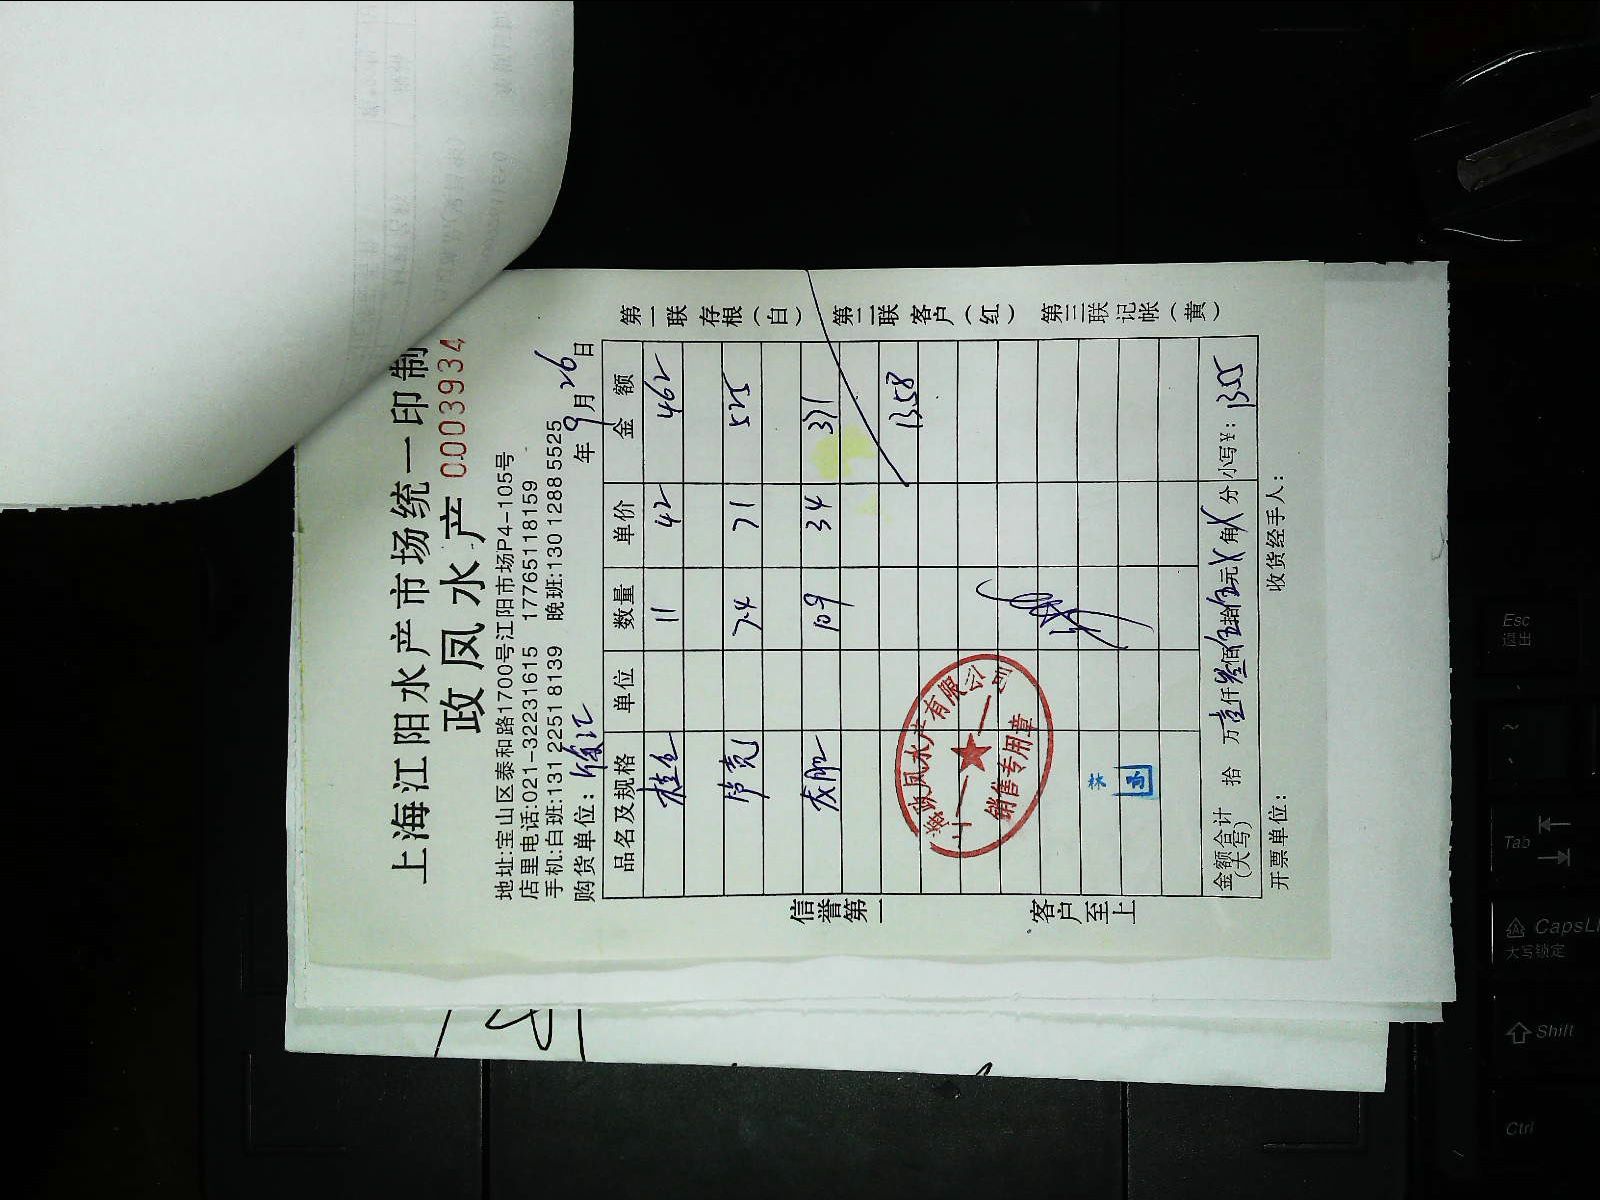 上海江阳水产市场统一印制
政凤水产 0003934
地址:宝山区泰和路1700号江阳市场P4-105号
店里电话:021-32231615 17765118159
手机:白班:131 2251 8139 晚班:130 1288 5525
购货单位: 徐汇 年9月26日
品名及规格 单位 数量 单价 金额
桂鱼 11 42 462
7.4 71 525
10.9 34 371
1358
金额合计(大写) 拾 万壹仟叁佰伍拾伍元 角 分 小写¥: 1355
开票单位: 收货经手人:
信誉第一 客户至上
第一联 存根(白) 第二联 客户(红) 第三联 记帐(黄)
政凤水产有限公司
销售专用章
Esc
退出
Tab
CapsL
大写锁定
Shift
Ctrl